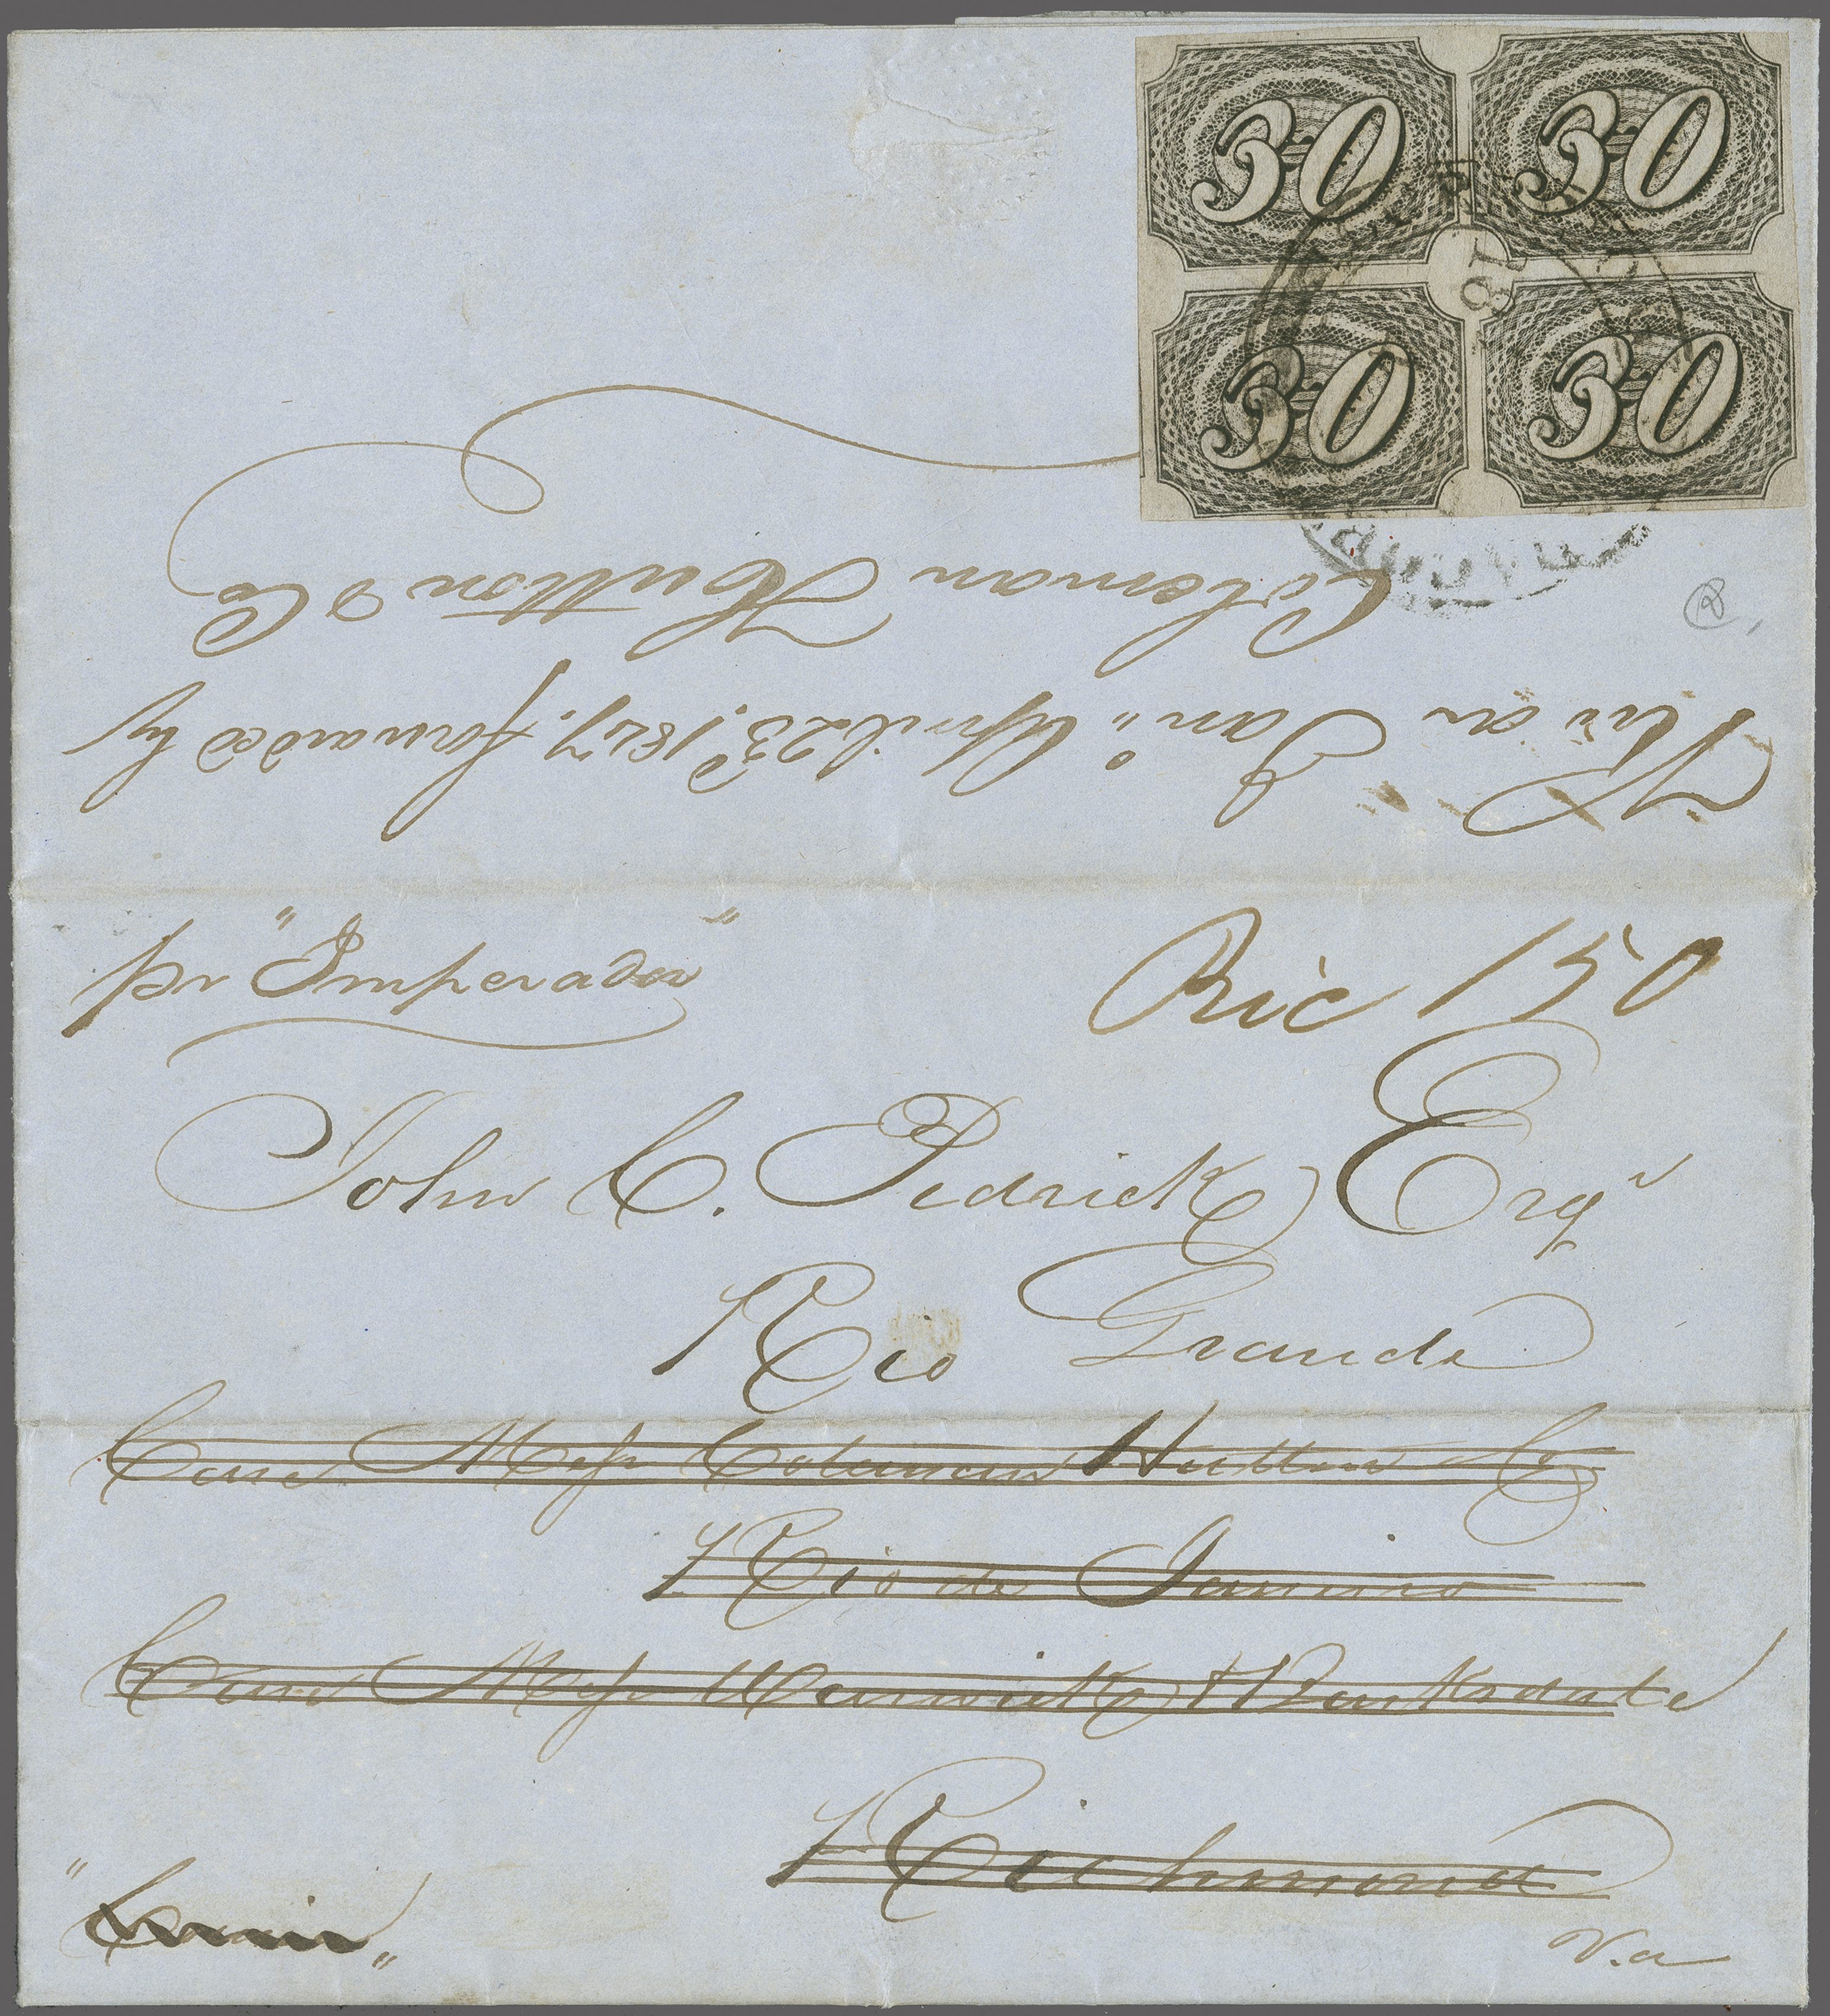 30 30
30 30
18
Rio de Jan.º April 23ᵈ 1847. forwarded by
Coleman Hutton & Co
pr "Imperador"
Ric 150
John C. Pedrick Esqʳ
Rio Grande
Care Messrs Coleman Hutton & Co
Rio de Janeiro
Care Messrs Warwick & Barksdale
Richmond
V.a